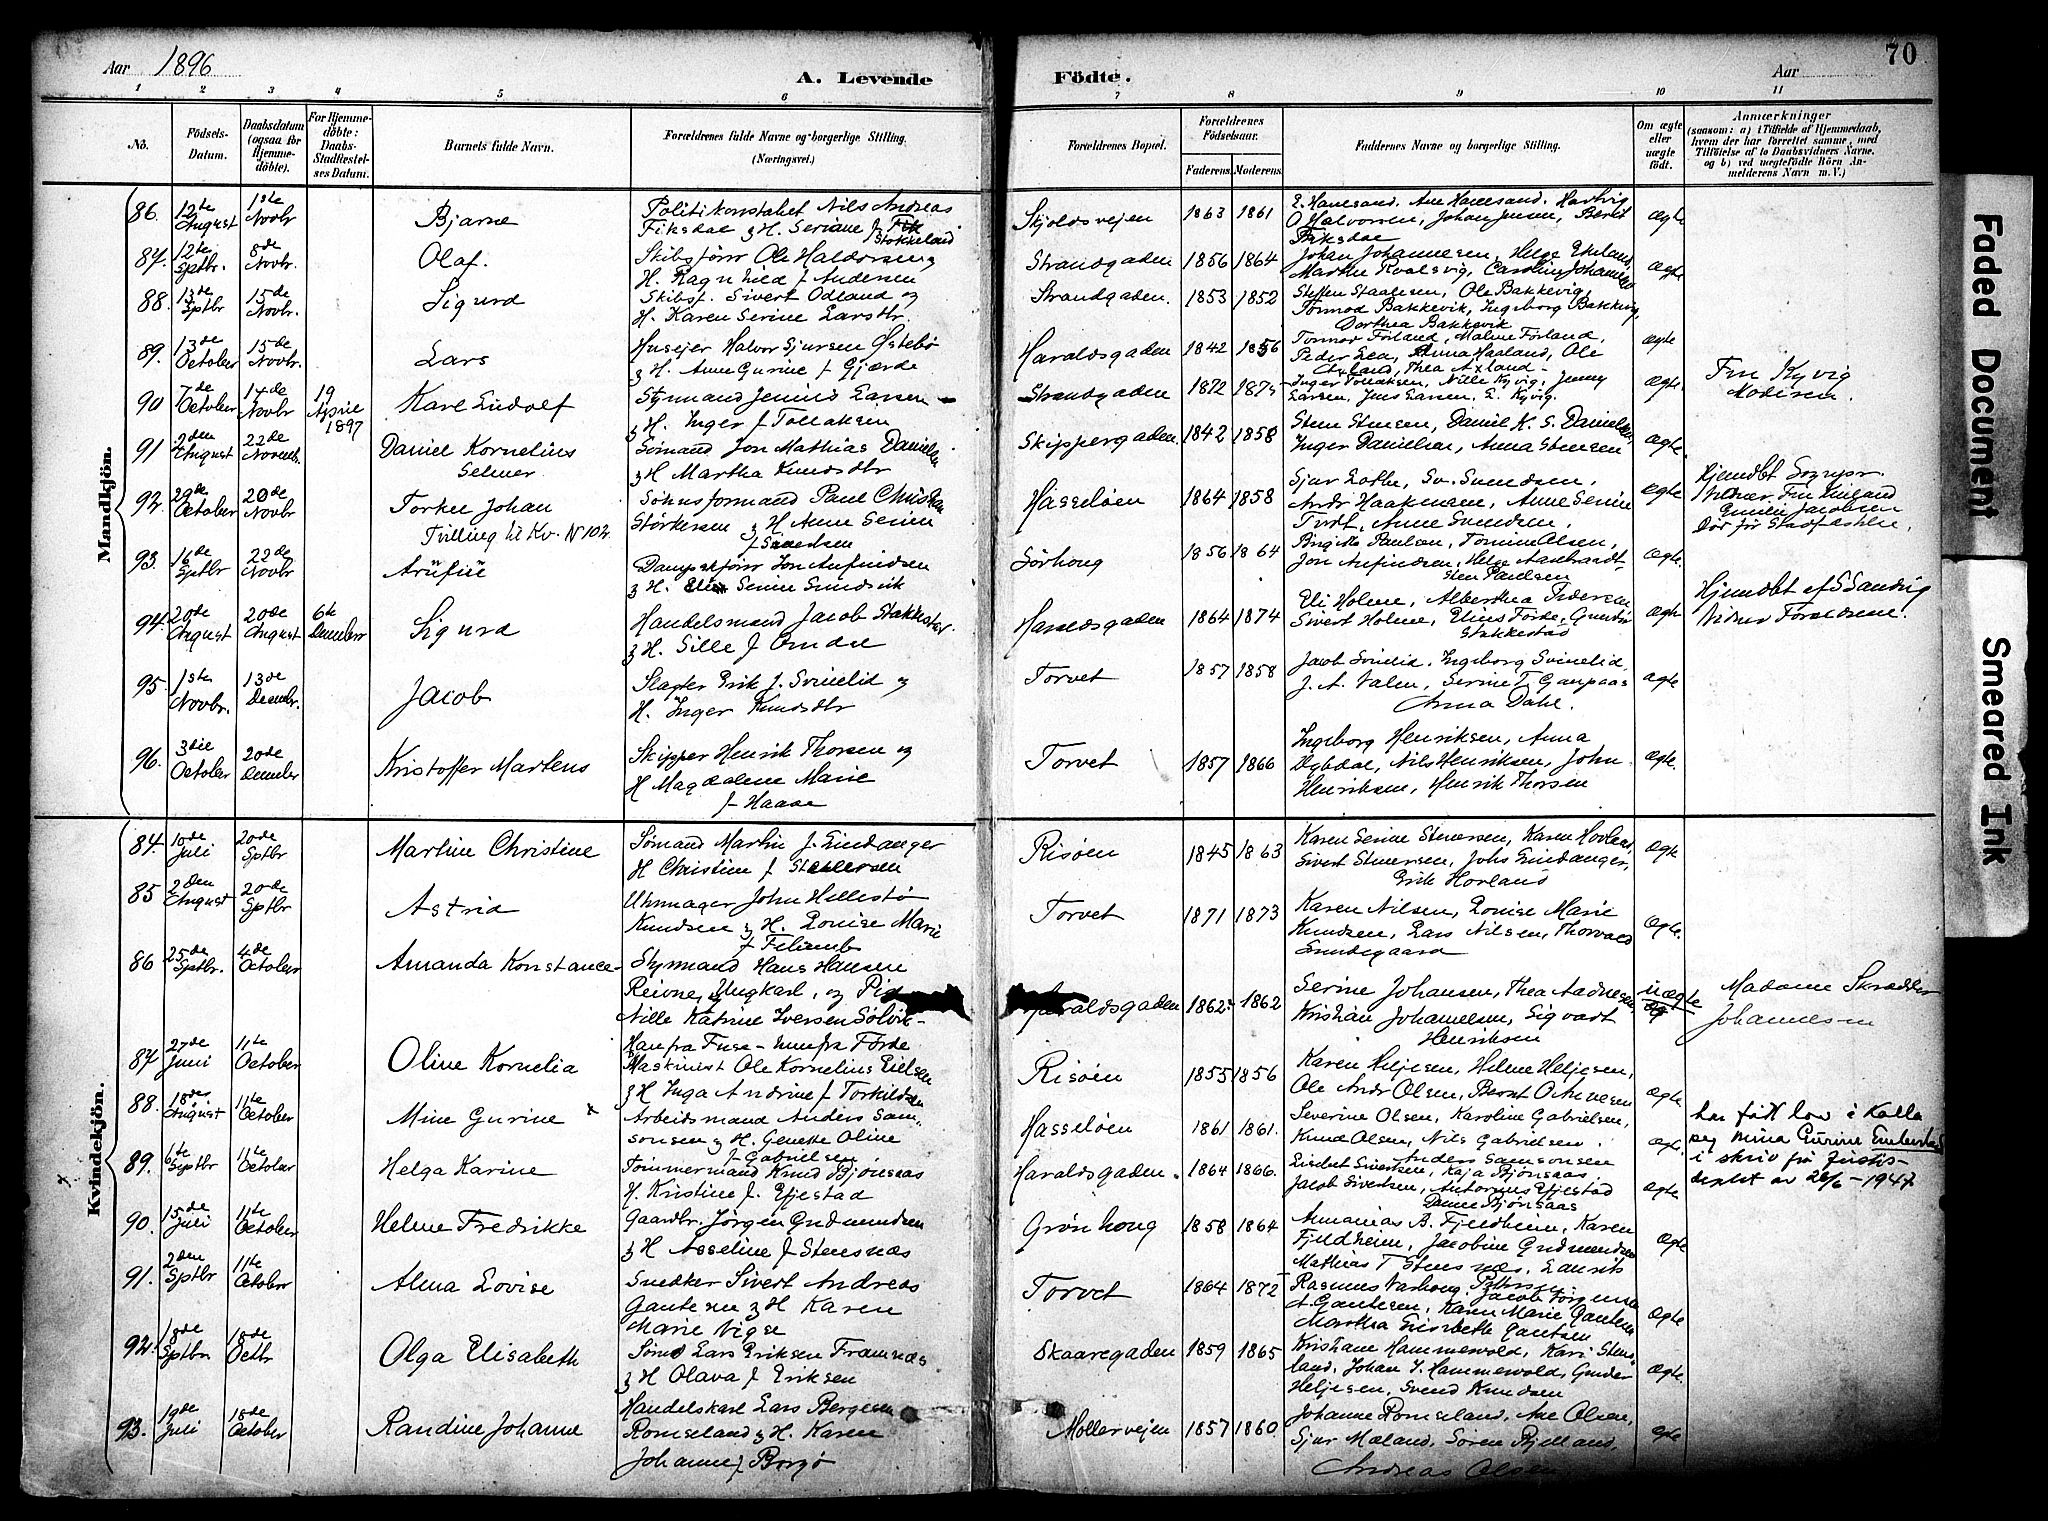 Aar 1896
A. Levende
Födte.
Aar
70
1 2 3 4 5 6 7 8 9 10 11
No.
Födsels-Datum.
Daabsdatum (ogsaa for Hjemme-döbte).
For Hjemme-döbte: Daabs-Stadfæstel-ses Datum.
Barnets fulde Navn.
Forældrenes fulde Navne og borgerlige Stilling. (Næringsvei.)
Forældrenes Bopæl.
Forældrenes Födselsaar.
Faderens Moderens
Faddernes Navne og borgerlige Stilling.
Om ægte eller uægte födt.
Anmærkninger
(saasom: a) i Tilfælde af Hjemmedaab, hvem der har forrettet samme, med Tilföielse af to Daabsvidners Navne. og b) ved uægtefödte Börn Anmelderens Navn m. V.)
Mandkjön.
86. 12te August 1ste Novbr Bjarne Politikonstabel Nils Andreas Fiksdal & H. Seriane f. Stokkeland Skjoldsvejen 1863 1861 E. Hanesand. Ane Hanesand. Hartvig O Halvorsen, Johan Jensen, Berit Fiksdal Ægte
87. 12te Sptbr. 8de Novbr. Olaf. Skibsförer Ole Haldorsen og H. Ragnhild f Andersen Strandgaden 1856 1864 Johan Johannesen, Helge Ekeland Marthe Roalsvig, Caroline Johannesen Ægte
88. 13de Sptbr 15de Novbr. Sigurd Skibsf. Sivert Odland og H. Karen Serine Larsdtr. Strandgaden. 1853 1852 Steffen Staalesen, Ole Bakkevig, Tormod Bakkevik, Ingeborg Bakkevig, Dorthea Bakkevik Ægte
89. 13de October 15de Novbr. Lars Husejer Halvor Sjursen Østebö & H. Anne Gurine f Gjærde Haraldsgaden 1842 1856 Tormod Förland, Malene Förland, Peder Lea, Anna Haaland, Ole Axland, Thea Axland Ægte
90. 7de October 14de Novbr 19 April 1897 Karl Ludolf Styrmand Larsen & H. Inger f Tollaksen Strandgaden 1872 1875 Inger Tollaksen, Nille Kyvig, Jenny Larsen, Jens Larsen, E. Kyvig. Ægte. Fru Kyvig Madsen.
91 2den August 22de Novembr. Daniel Kornelius Selmer Sömand Jon Mathias Danielsen & H Martha Knudsdtr Skippergaden. 1842 1858 Sten Stensen, Daniel K. S. Danielsen, Inger Danielsen, Anna Stensen Ægte
92. 29de October 20de Novbr Torkel Johan Tvilling til Kv. N 102. Paul Christian Störkersen & H Anne Serine f Sivertsen Hasselöen 1864 1858 Sjur Lothe, Sv. Svendsen, Andr Haakonsen, Anne Serine Tvedt, Anne Svendsen. Ægte Hjemdbt
93. 16de Sptbr 22de Novbr Arnfin Dampskförer Jon Anfindsen & H. Serine Sundsvik Sörhoug 1856 1864 Birgitte Paulsen, Tomine Olsen, Jon Anfindsen, Helge Sten Paulsen Ægte.
94. 20de August 20de August 6te December Sigurd Handelsmand Jacob Stakkestad. & H. Sille f Omdal Haraldsgaden 1864 1874 Eli Holme, Alberthea Pedersen, Sivert Holme, Elias Förde, Stakkestad Ægte Hjemdbt af S Sandvig Vidner Forældrene.
95. 1ste Novbr. 13de Decembr. Jacob Slagter Erik J. Svinelid og H. Inger Knudsdtr Torvet 1857 1858 Jacob Svinelid. Ingeborg Svinelid. J. A. Valen, Serine T. Gaupaas Anna Dahl. Ægte
96. 3die October 20de December Kristoffer Martens Skipper Henrik Thorsen og H Magdalene Marie f Haaso Torvet 1857 1866 Ingeborg Henriksen, Anna Dybdal, Nils Henriksen, John Henriksen, Henrik Thorsen Ægte.
Kvindekjön.
84. 10de Juli 20de Sptbr Martine Christine Sömand Martin J. Lindanger H Christine f Risöen 1845 1863 Karen Serine Stenersen, Karen Hovland, Sivert Stenersen, Johs Lindanger, Erik Hovland Ægte
85 2den August 20de Sptbr Astrid Uhrmager John Hellestö Knudsen & H. Louise Marie f Torvet 1871 1873 Karen Nilsen, Louise Marie Knudsen, Lars Nilsen, Thorvald Lundegaard Ægte.
86 25de Sptbr. 4de October Amanda Konstance Styrmand Hans Hansen Reivne, Ungkarl, og Pige Nille Katrine Iversen Sölvik- Han fra Fuse - hun fra Förde Haraldsgaden 1862 1862 Serine Johansen, Thea Aadnesen, Kristian Johannesen, Sigvart Henriksen uægte Madame Skrædder Johannesen
87 27de Juni 11te October Oline Kornelia Maskinist Ole Kornelius Eielsen & H Inga Andrine f Torkildsen Risöen 1855 1856 Karen Heljesen, Helene Heljesen, Ole Andr Olsen, Bernt O Ægte
88. 18de August 11te October Mine Gurine x Arbeidsmand Anders Samsonsen & H. Oline f Gabrielsen Hasselöen 1861 1861. Severine Olsen, Karoline Gabrielsen, Knud Olsen, Nils Gabrielsen. Anders Samsonsen Ægte. har fått lov i kalle seg Mina Gurine i skriv frå Justis-deptet av 26/6-1947
x 89. 6te Sptbr 11te October Helga Karine Tömmermand Knud Björsaas H. Kristine f. Efjestad Haraldsgaden. 1864 1866. Sivertsen, Kaja Björsaas Jacob Sivertsen, Antonius Efjestad Björsaas Ægte
90. 15de Juli 11te October Helene Fredrikke Gaardbr. Jörgen Gudmundsen & H Asseline f Stensnæs Grönhoug 1858 1864 Annanias B. Fjeldheim, Karen Fjeldheim, Jacobine Gudmundsen Mathias T Stensnæs, Laurits Ægte
91. 2den Sptbr 11te October Alma Lovise Snedker Sivert Andreas Gautesen & H Karen Marie Vigse Torvet 1864 1872 Rasmus Varhoug, Jacob Jörgensen A. Gautesen, Karen Marie Gautesen Martha Elisabeth Gautesen Ægte
92. 18de Sptbr 18de Octbr Olga Elisabeth Sömd Lars Eriksen Framnæs & H Olava f Eriksen Skaaregaden 1859 1865 Kristiane Hammersvold, Kari Stensland, Johan I. Hammersvold, Gunder Heljesen, Svend Knudsen Ægte.
93. 19de Juli 18de October Randine Johanne Handelskarl Lars Bergesen Romseland & H. Karen Johanne f Borgö Möllervejen 1857 1860 Johanne Romseland. Ane Olsen, Sjur Mæland, Sören Bjelland, Andreas Olsen Ægte
Faded Document
Smeared Ink